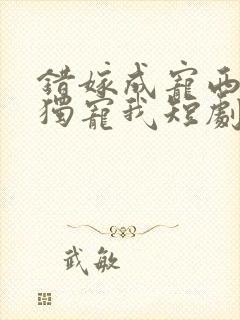 錯嫁成寵西
獨寵我短劇
武敏